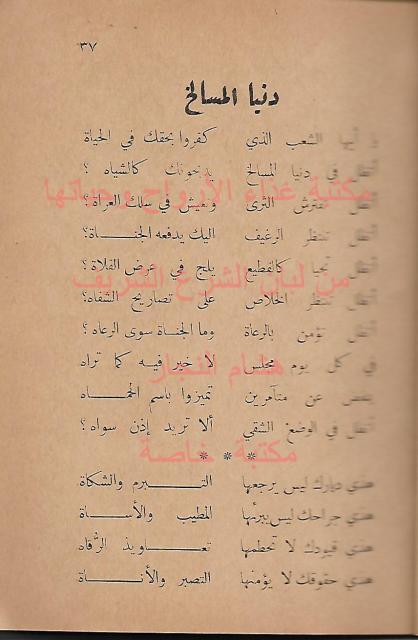 ٣٧
دنيا المسالخ
يا أيها الشعب الذي كفروا بحقك في الحياة
أتظل في دنيا المسالخ يذبحونك كالشياه ؟
تفترش الثرى وتعيش في سلك العراة ؟
أتظل تنتظر الرغيف اليك يدفعه الجناة؟
أتظل تحيا كالقطيع يلج في عرض الفلاة ؟
أتظل تنتظر الخلاص على تصاريح الشفاه؟
أتظل تؤمن بالرعاة وما الجناة سوى الرعاه ؟
في كل يوم مجلس لا خير فيه كما تراه
ينفض عن متآمرين تميزوا باسم الحماه
أتظل في الوضع الشقي ألا تريد إذن سواه ؟
* * *
هذي ديارك ليس يرجعها التبرم والشكاة
هذي جراحك ليس يبرئها المطيب والأساة
هذي قيودك لا تحطمها تعاويذ الرُّقاه
هذي حقوقك لا يؤمنها التصبر والأناة
مكتبة غذاء الأرواح وحياتها
من لبان الشرع الشريف
هشام النجار
مكتبة خاصة